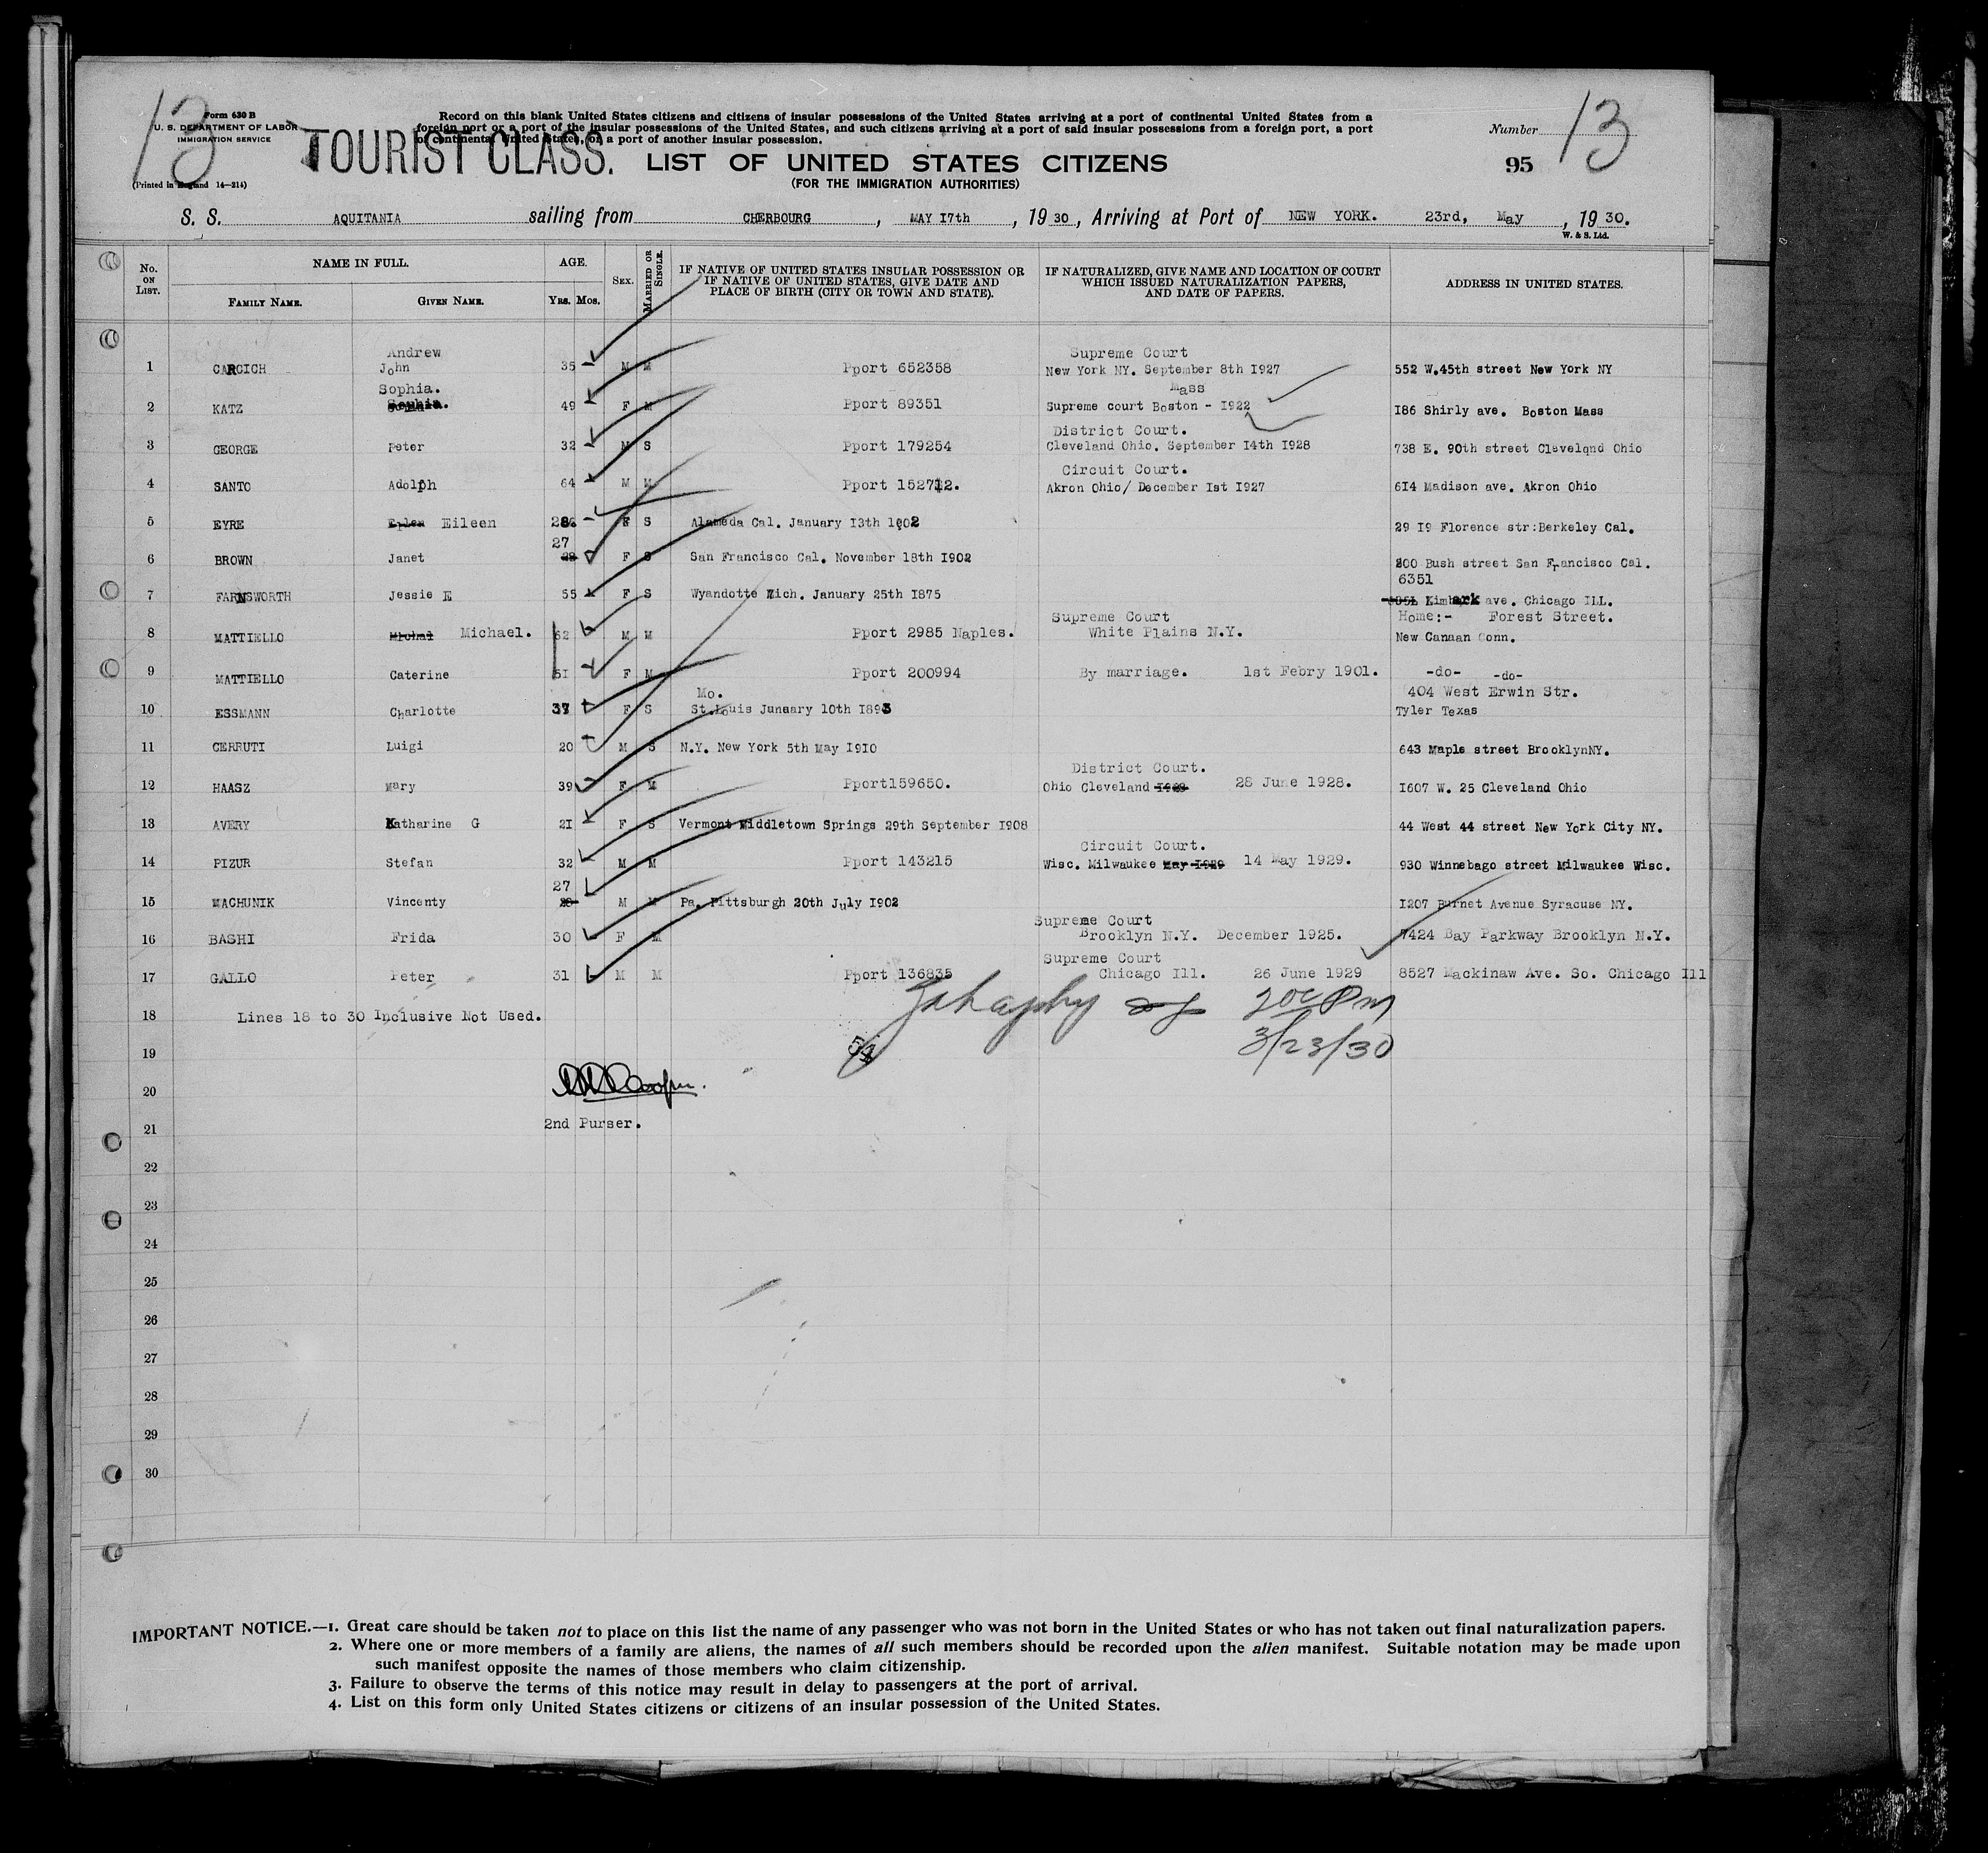 13
Form 630 B
U. S. DEPARTMENT OF LABOR
IMMIGRATION SERVICE
(Printed in England 14—214)
Record on this blank United States citizens and citizens of insular possessions of the United States arriving at a port of continental United States from a
foreign port or a port of the insular possessions of the United States, and such citizens arriving at a port of said insular possessions from a foreign port, a port
of continental United States, or a port of another insular possession.
TOURIST CLASS. LIST OF UNITED STATES CITIZENS
(FOR THE IMMIGRATION AUTHORITIES)
Number 13
95
S. S. AQUITANIA sailing from CHERBOURG, MAY I7th, 19 30, Arriving at Port of NEW YORK. 23rd, May, 19 30.
W. & S. Ltd.
No. ON LIST. NAME IN FULL. FAMILY NAME. GIVEN NAME. AGE. YRS. MOS. SEX. MARRIED OR SINGLE.
IF NATIVE OF UNITED STATES INSULAR POSSESSION OR
IF NATIVE OF UNITED STATES, GIVE DATE AND
PLACE OF BIRTH (CITY OR TOWN AND STATE).
IF NATURALIZED, GIVE NAME AND LOCATION OF COURT
WHICH ISSUED NATURALIZATION PAPERS,
AND DATE OF PAPERS.
ADDRESS IN UNITED STATES.
Andrew Supreme Court
1 CARCICH John 35 M M Pport 652358 New York NY. September 8th I927 552 W.45th street New York NY
Sophia. Mass
2 KATZ 49 F M Pport 89351 Supreme court Boston - I922 I86 Shirly ave. Boston Mass
District Court.
3 GEORGE Peter 32 M S Pport 179254 Cleveland Ohio. September I4th I928 738 E. 90th street Cleveland Ohio
Circuit Court.
4 SANTO Adolph 64 M M Pport 152712. Akron Ohio/ December Ist I927 6I4 Madison ave. Akron Ohio
5 EYRE Eileen 28 F S Alameda Cal. January I3th 1902 29 I9 Florence str:Berkeley Cal.
27
6 BROWN Janet 28 F S San Francisco Cal. November I8th I902 200 Bush street San Francisco Cal.
6351
7 FARNSWORTH Jessie E 55 F S Wyandotte Mich. January 25th I875 Kimbark ave. Chicago ILL.
Supreme Court Home:- Forest Street.
8 MATTIELLO Michal Michael. 62 M M Pport 2985 Naples. White Plains N.Y. New Canaan Conn.
9 MATTIELLO Caterine 5I F M Pport 200994 By marriage. 1st Febry 1901. -do- -do-
Mo. 404 West Erwin Str.
10 ESSMANN Charlotte 37 F S St.Louis January 10th 1893 Tyler Texas
11 CERRUTI Luigi 20 M S N.Y. New York 5th May I9I0 643 Maple street BrooklynNY.
District Court.
12 HAASZ Mary 39 F M Pport159650. Ohio Cleveland 28 June 1928. I607 W. 25 Cleveland Ohio
13 AVERY Katharine G 2I F S Vermont Middletown Springs 29th September I908 44 West 44 street New York City NY.
Circuit Court.
14 PIZUR Stefan 32 M M Pport 143215 Wisc. Milwaukee May I929 14 May 1929. 930 Winnebago street Milwaukee Wisc.
27
15 MACHUNIK Vincenty 28 M M Pa. Pittsburgh 20th July I902 I207 Burnet Avenue Syracuse NY.
Supreme Court
16 BASHI Frida 30 F M Brooklyn N.Y. December 1925. 7424 Bay Parkway Brooklyn N.Y.
Supreme Court
17 GALLO Peter 31 M M Pport 136835 Chicago Ill. 26 June 1929 8527 Mackinaw Ave. So. Chicago Ill
18 Lines 18 to 30 Inclusive Not Used.
3/23/30
19
20
21 2nd Purser.
22
23
24
25
26
27
28
29
30
IMPORTANT NOTICE.—1. Great care should be taken not to place on this list the name of any passenger who was not born in the United States or who has not taken out final naturalization papers.
2. Where one or more members of a family are aliens, the names of all such members should be recorded upon the alien manifest. Suitable notation may be made upon
such manifest opposite the names of those members who claim citizenship.
3. Failure to observe the terms of this notice may result in delay to passengers at the port of arrival.
4. List on this form only United States citizens or citizens of an insular possession of the United States.